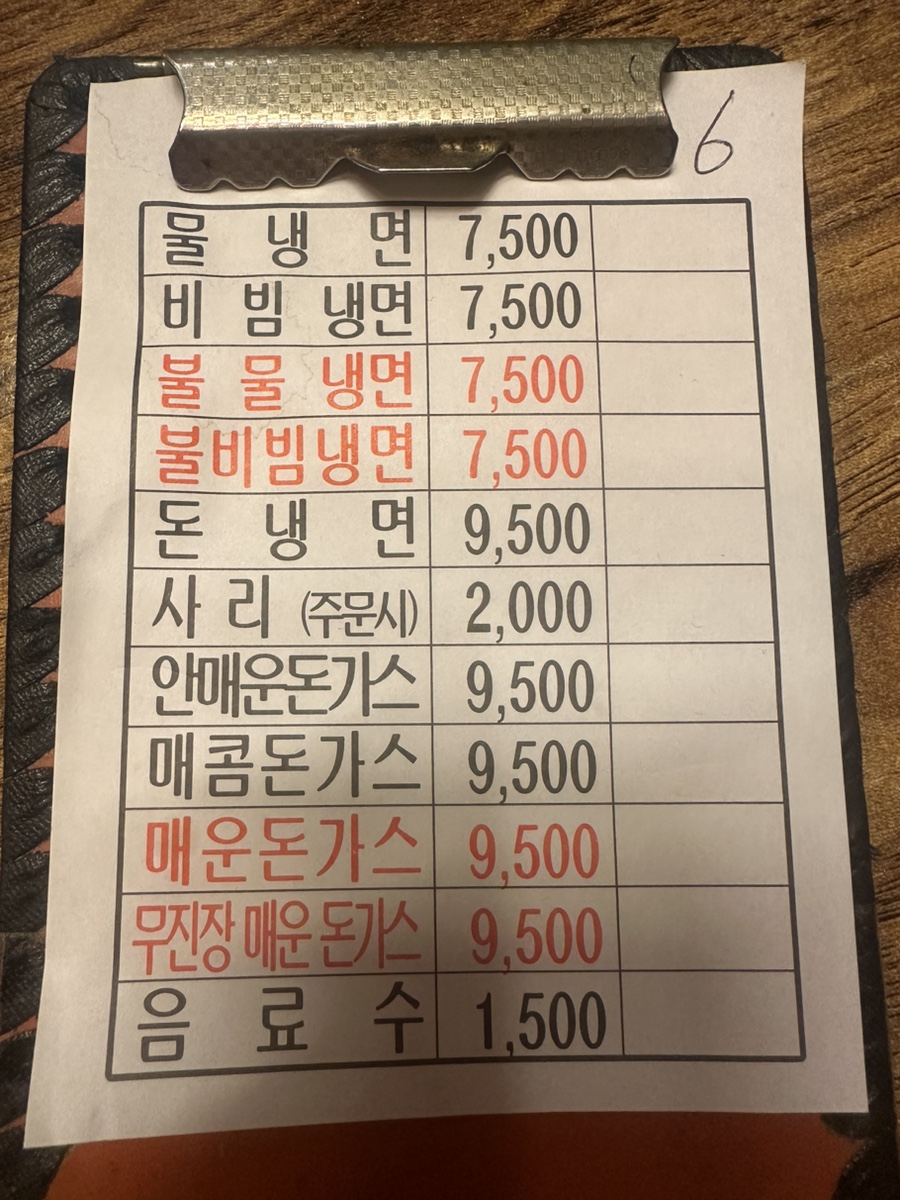 6
물 냉 면 7,500
비 빔 냉면 7,500
불 물 냉면 7,500
불비빔냉면 7,500
돈 냉 면 9,500
사 리 (주문시) 2,000
안매운돈가스 9,500
매콤돈가스 9,500
매운돈가스 9,500
무진장 매운 돈가스 9,500
음 료 수 1,500